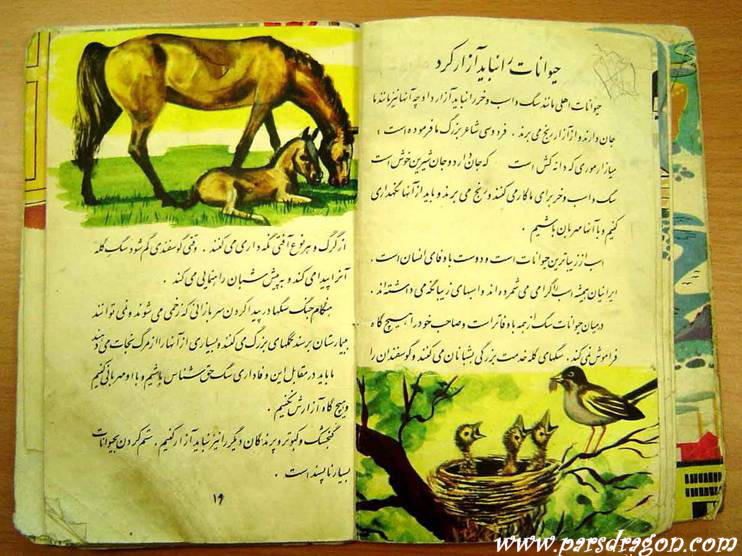 حیوانات را نباید آزار کرد
حیوانات اهلی مانند سگ و اسب و خر را نباید آزار داد چه آنها نیز مانند ما
جان دارند و از آزار رنج می برند . فردوسی شاعر بزرگ ما فرموده است :
میازار موری که دانه کش است که جان دارد و جان شیرین خوش است
سگ و اسب و خر برای ما کار می کنند و رنج می برند و باید از آنها نگهداری
کنیم و با آنها مهربان باشیم .
اسب از زیباترین حیوانات است و دوست با وفای انسان است .
ایرانیان همیشه اسب را گرامی می شمرده اند و اسبهای زیبا نگه می داشته اند .
در میان حیوانات سگ از همه با وفاتر است و صاحب خود را هیچ گاه
فراموش نمی کند . سگهای گله خدمت بزرگی بشبانان می کنند و گوسفندان را
از گرگ و هر نوع آفتی نگه داری می کنند . وقتی گوسفندی گم شود سگ گله
آنرا پیدا می کند و به پیش شبان راهنمایی می کند .
هنگام جنگ سگها در پیدا کردن سربازانی که زخمی می شوند و نمی توانند
ببیمارستان برسند کمکهای بزرگ می کنند و بسیاری از آنها را از مرگ نجات می دهند
ما باید در مقابل این وفاداری سگ حق شناس باشیم و با او مهربانی کنیم
و هیچ گاه آزارش نکنیم .
گنجشک و کبوتر و پرندگان دیگر را نیز نباید آزار کنیم . ستم کردن بحیوانات
بسیار ناپسند است .
۱۹
www.parsdragon.com